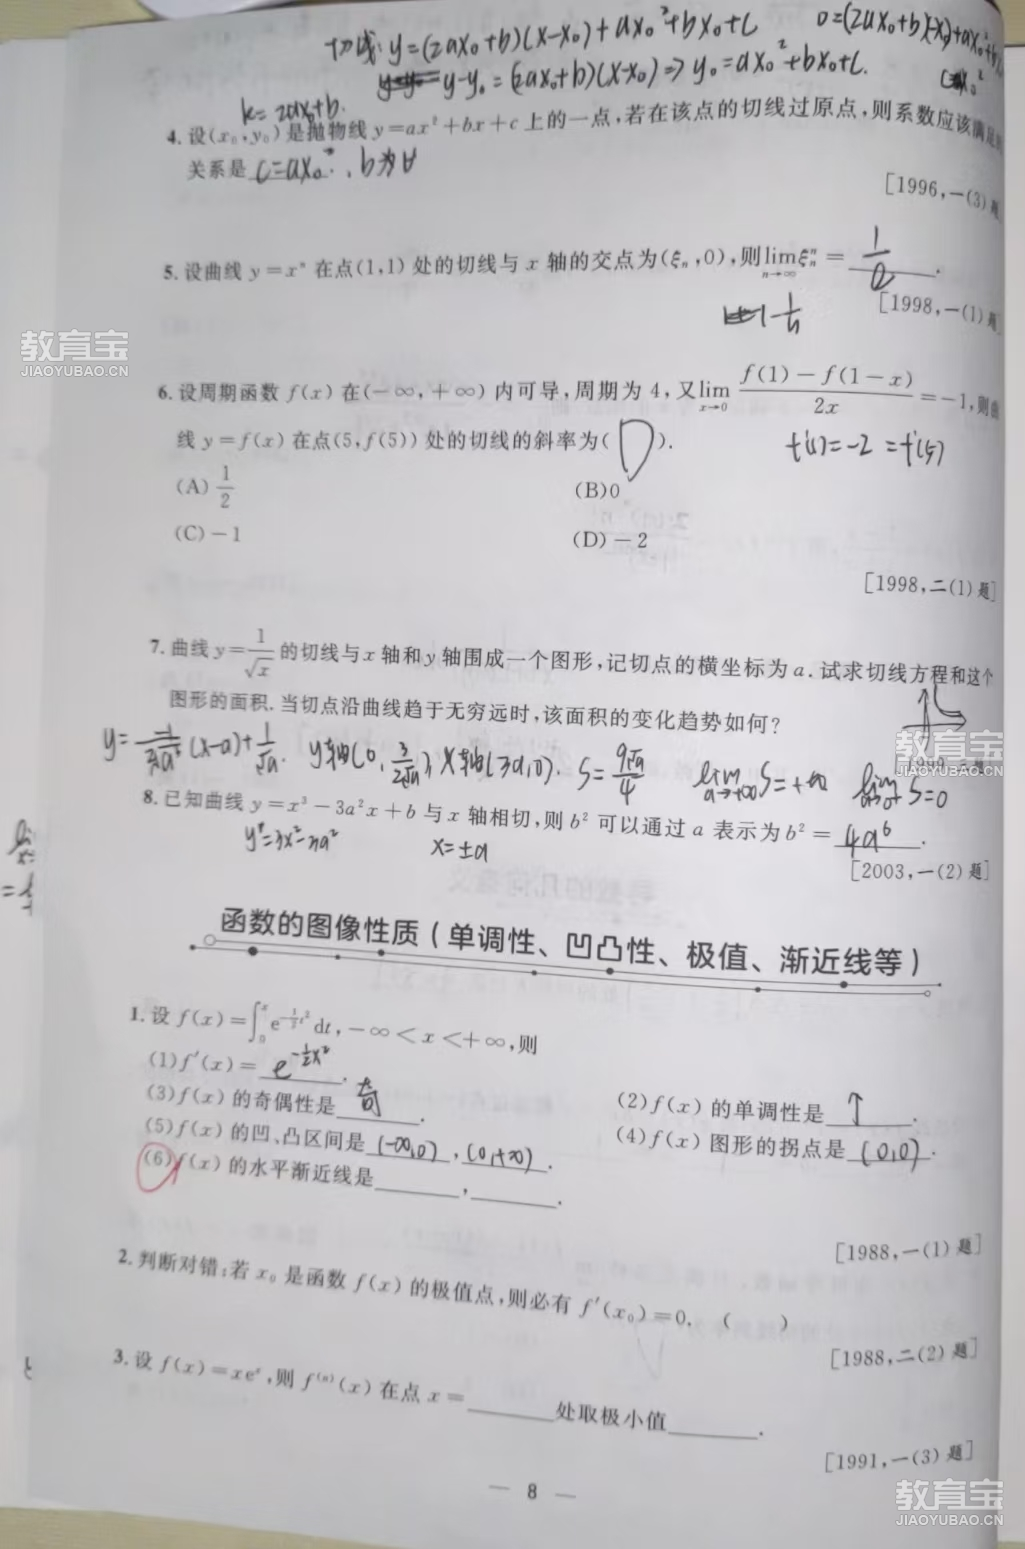 切线: y=(2ax₀+b)(x-x₀)+ax₀²+bx₀+c
y-y₀=(2ax₀+b)(x-x₀)⇒y₀=ax₀²+bx₀+c.
k=2ax₀+b.
4.设(x₀,y₀)是抛物线 y=ax²+bx+c 上的一点,若在该点的切线过原点,则系数应该满足的
关系是 c=ax₀², b为∀
[1996,一(3)题
5.设曲线 y=xⁿ 在点(1,1)处的切线与 x 轴的交点为(ξₙ,0),则lim_{n→∞}ξₙⁿ= 1/e .
[1998,一(1)题]
1-1/n
教育宝
JIAOYUBAO.CN
6.设周期函数 f(x) 在(-∞,+∞)内可导,周期为 4,又lim_{x→0} (f(1)-f(1-x))/(2x) =-1,则曲
线 y=f(x) 在点(5,f(5))处的切线的斜率为( D ).
f'(1)=-2=f'(5)
(A) 1/2
(B)0
(C)-1
(D)-2
[1998,二(1)题]
7.曲线 y=1/√x 的切线与 x 轴和 y 轴围成一个图形,记切点的横坐标为 a.试求切线方程和这个
图形的面积.当切点沿曲线趋于无穷远时,该面积的变化趋势如何?
y轴(0, 3/(2√a)), x轴(3a,0). S=9√a/4 lim_{a→+∞}S=+∞ S=0
8.已知曲线 y=x³-3a²x+b 与 x 轴相切,则 b² 可以通过 a 表示为 b²= 4a⁶ .
y'=3x²-3a² x=±a
[2003,一(2)题]
函数的图像性质(单调性、凹凸性、极值、渐近线等)
1.设 f(x)=∫₀ˣ e^{-½t²}dt,-∞<x<+∞,则
(1)f'(x)= e^{-½x²} .
(2)f(x) 的单调性是 ↑ .
(3)f(x) 的奇偶性是 奇 .
(4)f(x) 图形的拐点是 (0,0) .
(5)f(x) 的凹、凸区间是 (-∞,0) , (0,+∞) .
(6)f(x) 的水平渐近线是______,______.
[1988,一(1)题]
2.判断对错:若 x₀ 是函数 f(x) 的极值点,则必有 f'(x₀)=0. ( )
[1988,二(2)题]
3.设 f(x)=xeˣ,则 f⁽ⁿ⁾(x) 在点 x=______处取极小值______.
[1991,一(3)题]
— 8 —
教育宝
JIAOYUBAO.CN